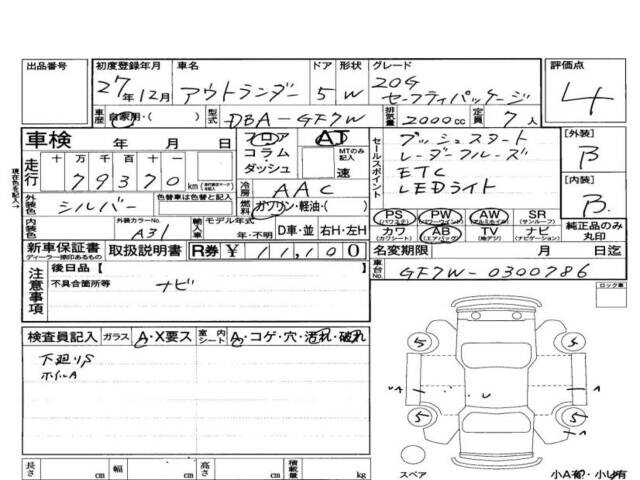 出品番号 初度登録年月 車名 ドア 形状 グレード 評価点
27年12月 アウトランダー 5 W 20G セーフティパッケージ 4
車歴 自家用・( ) 型式 DBA-GF7W 排気量 2000cc 定員 7人
車検 年 月 日 フロア コラム・ダッシュ AT MTのみ記入 速
セールスポイント プッシュスタート
レーダークルーズ
ETC
LEDライト
[外装] B
[内装] B
現在色を記入→
走行 十 万 千 百 十 一
79370 km
冷房 AAC
外装色 シルバー 色替車は色替と記入 燃料 ガソリン・軽油・( )
内装色 外装カラーNo. A31 輸入車 モデル年式 年・不明 D車・並 右H・左H
PS (パワステ) PW (パワーウインド) AW (アルミホイル) SR (サンルーフ)
カワ (カワシート) AB (エアバッグ) TV (地デジ) ナビ (ナビゲーション) 純正品のみ丸印
新車保証書 ディーラー捺印あるもの 取扱説明書 R券 ¥11,100 名変期限 月 日迄
注意事項 後日品[ ] 車台No. GF7W-0300786
不具合箇所等 ナビ
ロック車
検査員記入 ガラス A・X要ス 室内シート A・コゲ・穴・汚れ・破れ
下廻りS
ホイルA
5 5
UA U A
5 5 A
スペア 小A有・小U有
長さ cm 幅 cm 高さ cm 積載量 kg